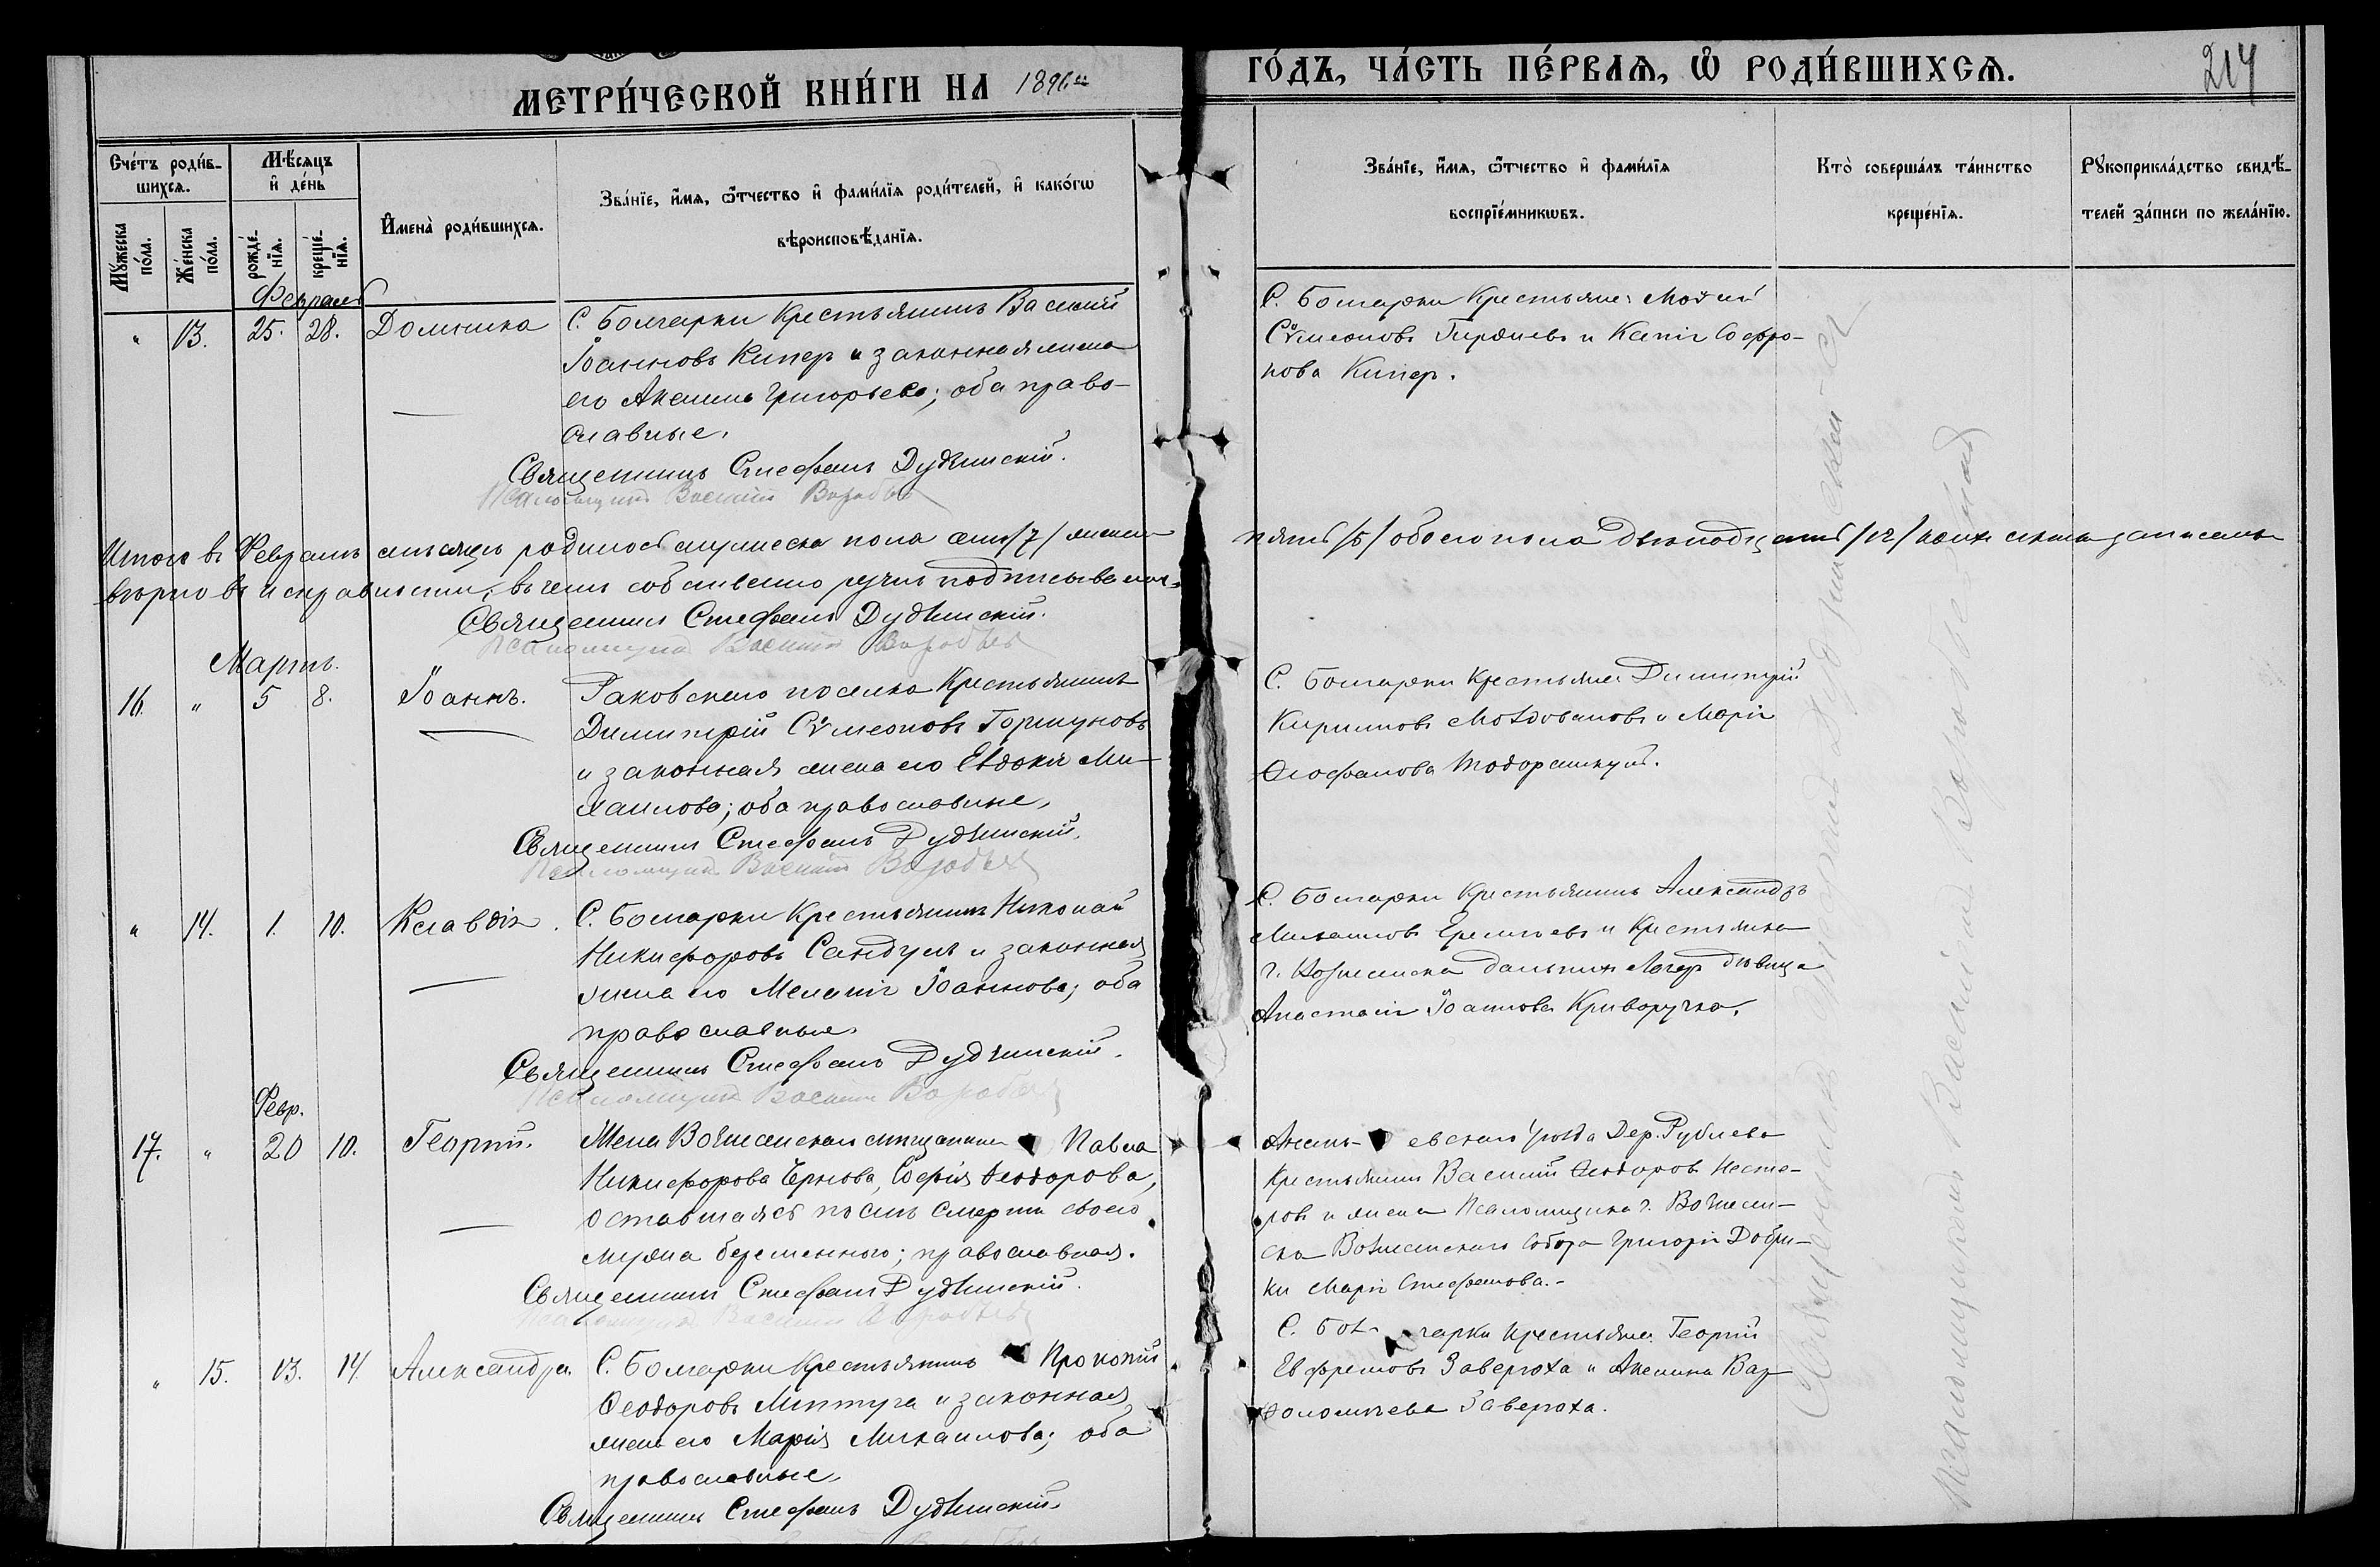 МЕТРИ́ЧЕСКОЙ КНИ́ГИ НА 1896й
ГО́ДЪ, ЧА́СТЬ ПЕ́РВАѦ, Ѽ РОДИ́ВШИХСѦ.
214
Сче́тъ роди́в-
шихсѧ.
Мѣ́сѧцъ
и҆ де́нь
Мꙋ́жеска
по́ла.
Же́нска
по́ла.
рожде́-
нїѧ.
креще́-
нїѧ.
И҆мена̀ роди́вшихсѧ.
Зва́нїе, и҆́мѧ, ѻ҆́тчество и҆ фами́лїѧ роди́телей, и҆ како́гѡ
вѣроисповѣ́данїѧ.
Зва́нїе, и҆́мѧ, ѻ҆́тчество и҆ фами́лїѧ
воспрїе́мникѡвъ.
Кто̀ соверша́лъ та́инство
креще́нїѧ.
Рꙋкоприкла́дство свидѣ́-
телей за́писи по жела́нїю.
Февраль
" 13. 25. 28. Домника
С. Болгарки Крестьянинъ Василий
Іоанновъ Кипер и законная жена
его Акилина Григорьева; оба право-
славные.
Священникъ Стефанъ Дудзинскій.
Псаломщикъ Василий Воробьев
С. Болгарки Крестьяне:
Сѵмеоновъ и Софро-
нова Кипер.
Итого въ Февралѣ мѣсяцѣ родилось мужеска пола семь /7/ женска
пять /5/ обоего пола двѣнадцать /12/
вѣрно въ исправности, въ чемъ собственно ручно подписываемся
Священникъ Стефанъ Дудзинскій.
Псаломщикъ Василий Воробьев
Мартъ.
16. " 5 8. Іоаннъ.
Раковскаго поселка Крестьянинъ
Димитрій Сѵмеоновъ Горшуновъ
и законная жена его Евдокія Ми-
хаилова; оба православные.
Священникъ Стефанъ Дудзинскій.
Псаломщикъ Василий Воробьев
С. Болгарки Крестьяне Димитрій
Кирилловъ Молдовановъ и Марія
Ѳеофанова
" 14. 1. 10. Клавдія.
С. Болгарки Крестьянинъ Николай
Никифоровъ Сандулъ и законная
жена его Меланія Іоаннова; оба
православные.
Священникъ Стефанъ Дудзинскій.
Псаломщикъ Василий Воробьев
С. Болгарки Крестьянинъ Александръ
Михаиловъ и Крестьянка
г. Вознесенска дальнихъ Лагер дѣвица
Анастасія Іоаннова Криворучка.
Февр.
17. " 20 10. Георгій.
Жена Вознесенскаго мѣщанина Павла
Никифорова Чернова, Софія Ѳеодорова,
оставшаяся послѣ смерти своего
мужа беременною; православная.
Священникъ Стефанъ Дудзинскій.
Псаломщикъ Василий Воробьев
Анань- евскаго уѣзда Дер. Рублева
Крестьянинъ Василий Ѳеодоров Несте-
ровъ и жена Псаломщика г. Вознесен-
ска Вознесенскаго Собора Григорія Добри-
ки Марія Стефанова.-
" 15. 13. 14. Александра.
С. Болгарки Крестьянинъ Прокопій
Ѳеодоровъ и законная
жена его Марія Михаилова; оба
православные.
Священникъ Стефанъ Дудзинскій.
С. Бол- гарки Крестьяне: Георгій
Евфремовъ Заверюха и Акилина Вар-
ѳоломѣева Заверюха.
Священникъ Стефанъ Дудзинскій
Псаломщикъ Василій Воробьев